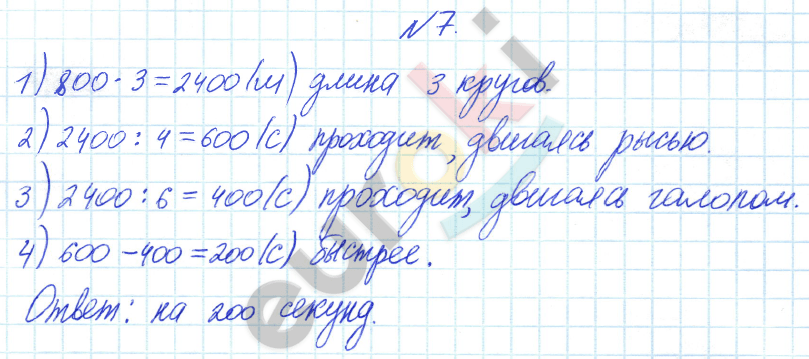 N 7.
1) 800 · 3 = 2400 (м) длина 3 кругов.
2) 2400 : 4 = 600 (с) проходит, двигаясь рысью.
3) 2400 : 6 = 400 (с) проходит, двигаясь галопом.
4) 600 - 400 = 200 (с) быстрее.
Ответ: на 200 секунд.
euroki